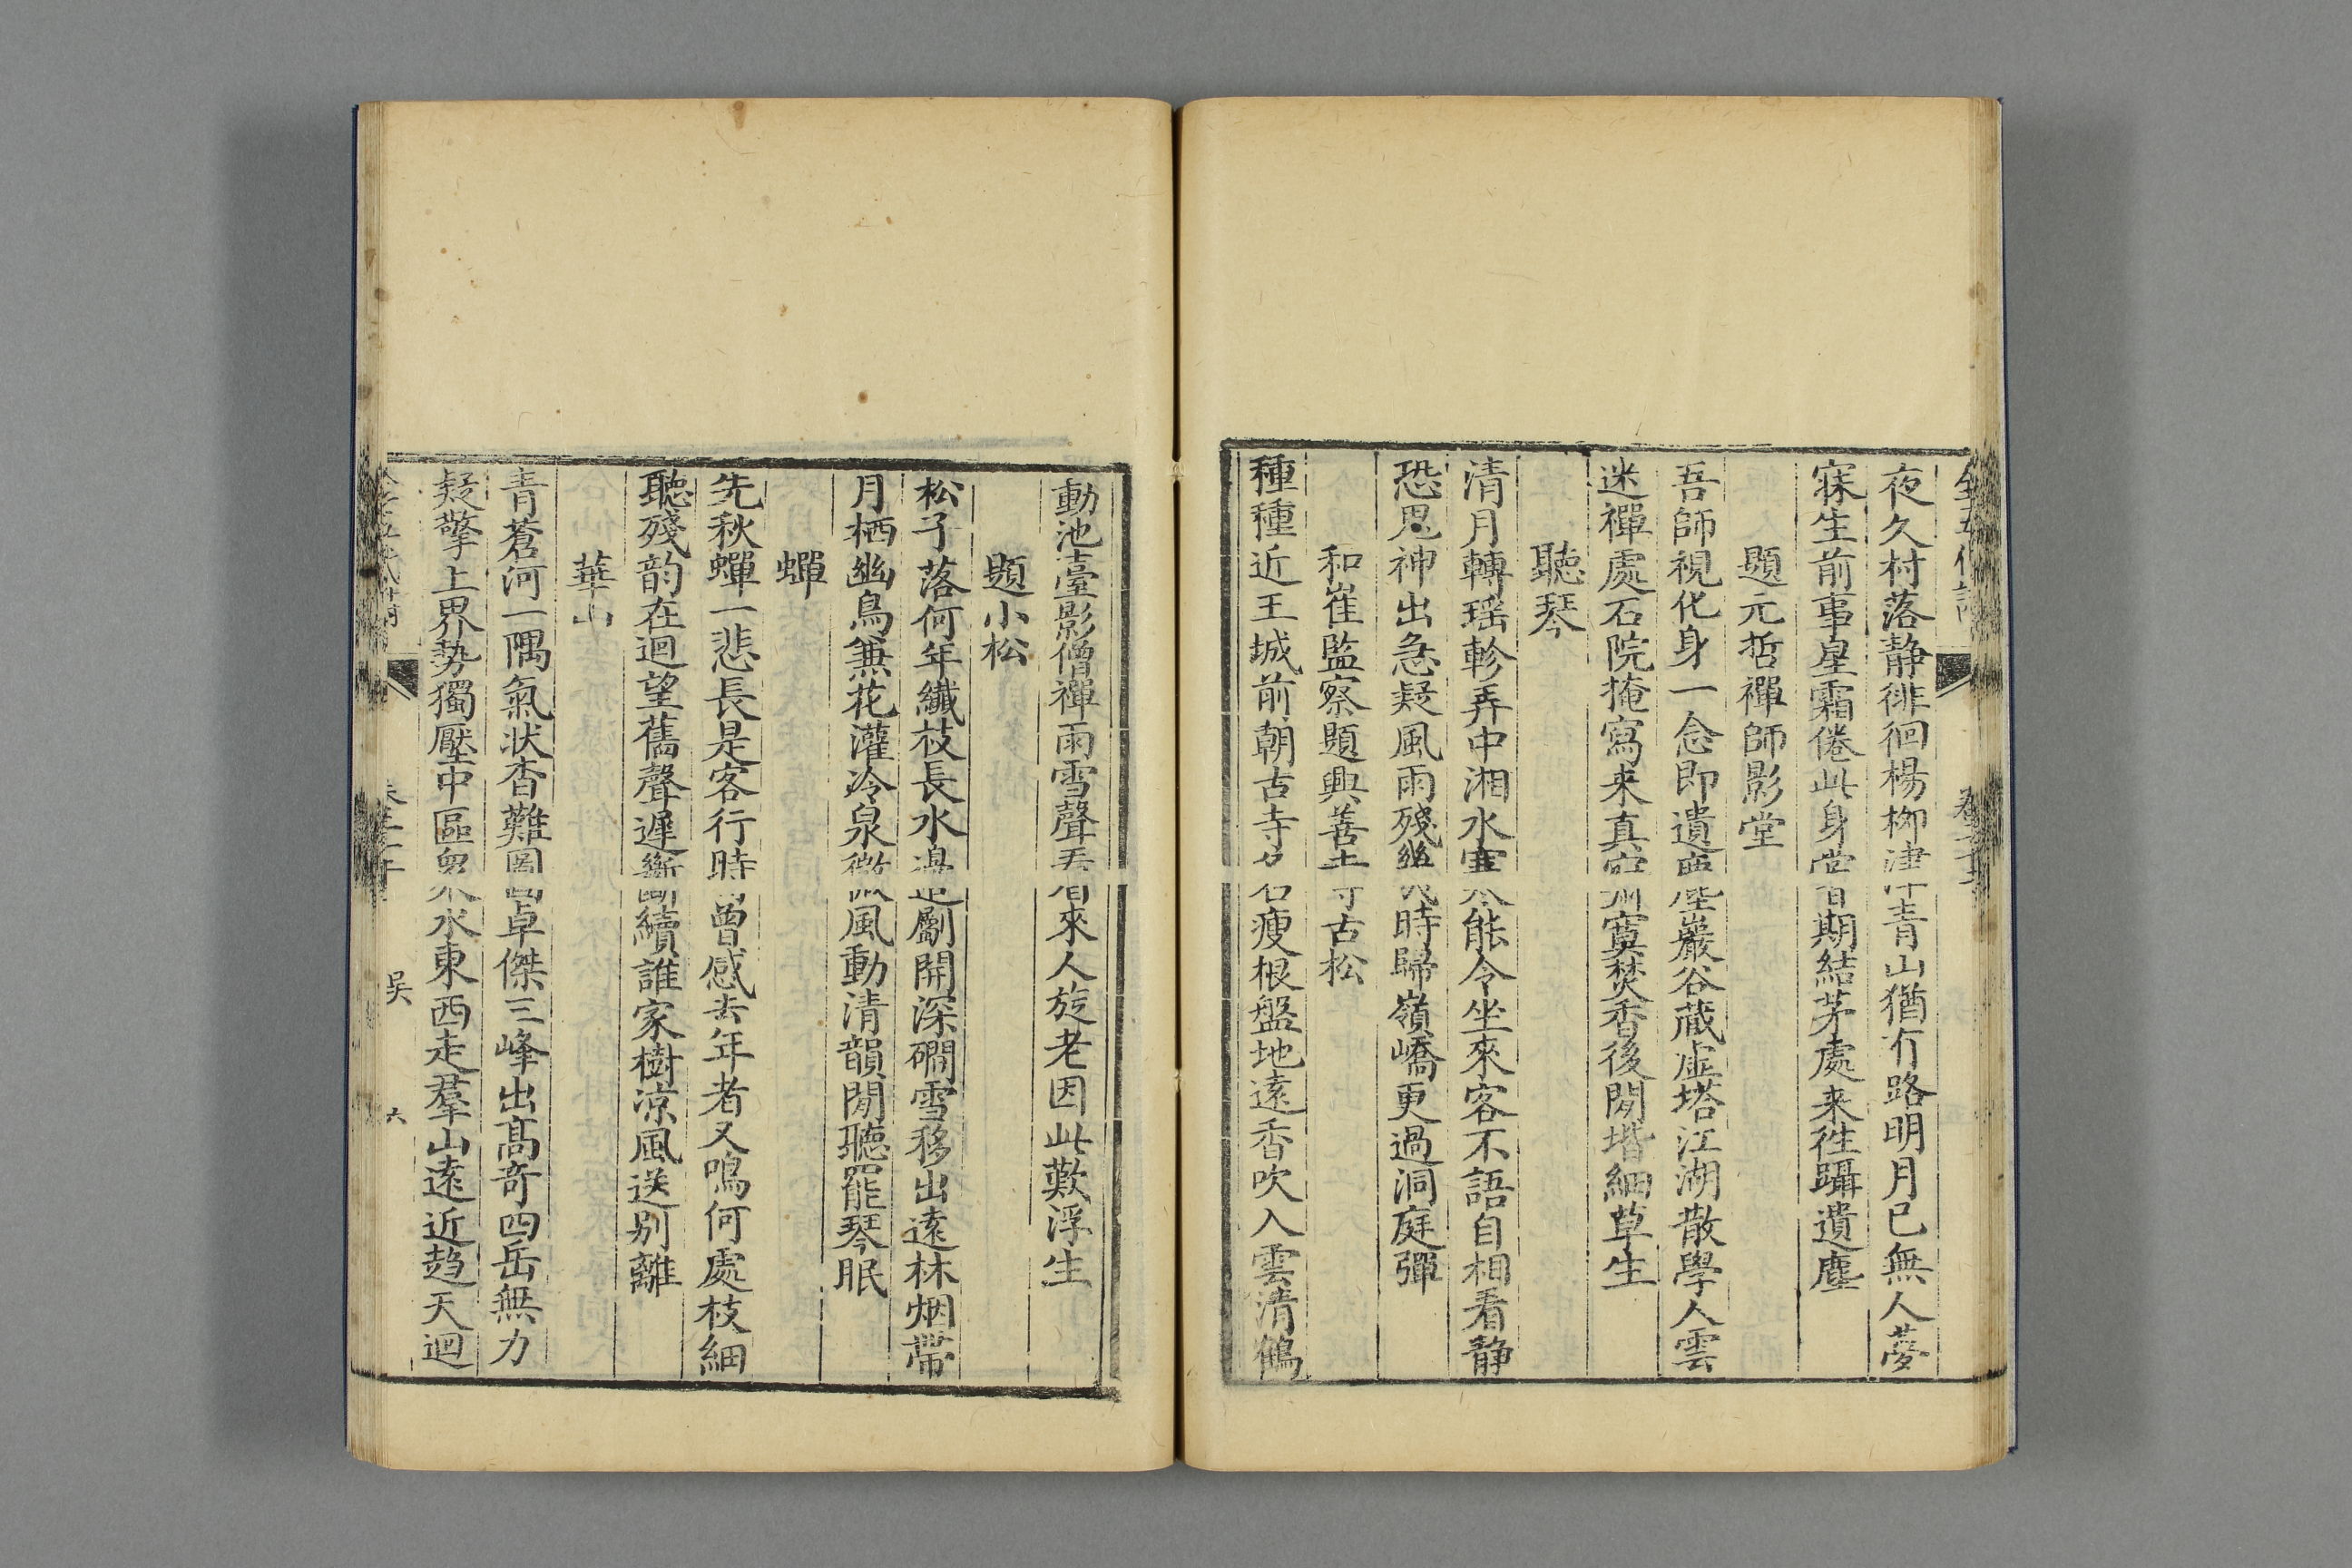 夜久村落静徘徊楊柳津青山猶有路明月已無人夢
寐生前事星霜倦此身嘗期結茅處来徃躡遺塵
題元哲禪師影堂
吾師視化身一念即遺塵巖谷藏虚塔江湖散學人雲
迷禪處石院掩寫来真寂寞焚香後閒堦細草生
聽琴
清月轉瑶軫弄中湘水寒能令坐來客不語自相看静
恐鬼神出急疑風雨殘幾時歸嶺嶠更過洞庭彈
和崔監察題興善寺古松
種種近王城前朝古寺名瘦根盤地遠香吹入雲清鶴
動池臺影僧禪雨雪聲看來人旋老因此歎浮生
題小松
松子落何年纖枝長水邊斸開深磵雪移出遠林烟帶
月栖幽鳥兼花灌冷泉微風動清韻閒聽罷琴眠
蟬
先秋蟬一悲長是客行時曾感去年者又鳴何處枝細
聽殘韵在迴望舊聲遲斷續誰家樹凉風送别離
華山
青蒼河一隅氣状杳難圖卓傑三峰出高竒四岳無力
疑擎上界勢獨壓中區衆水東西走羣山遠近趋天迴
吳
六